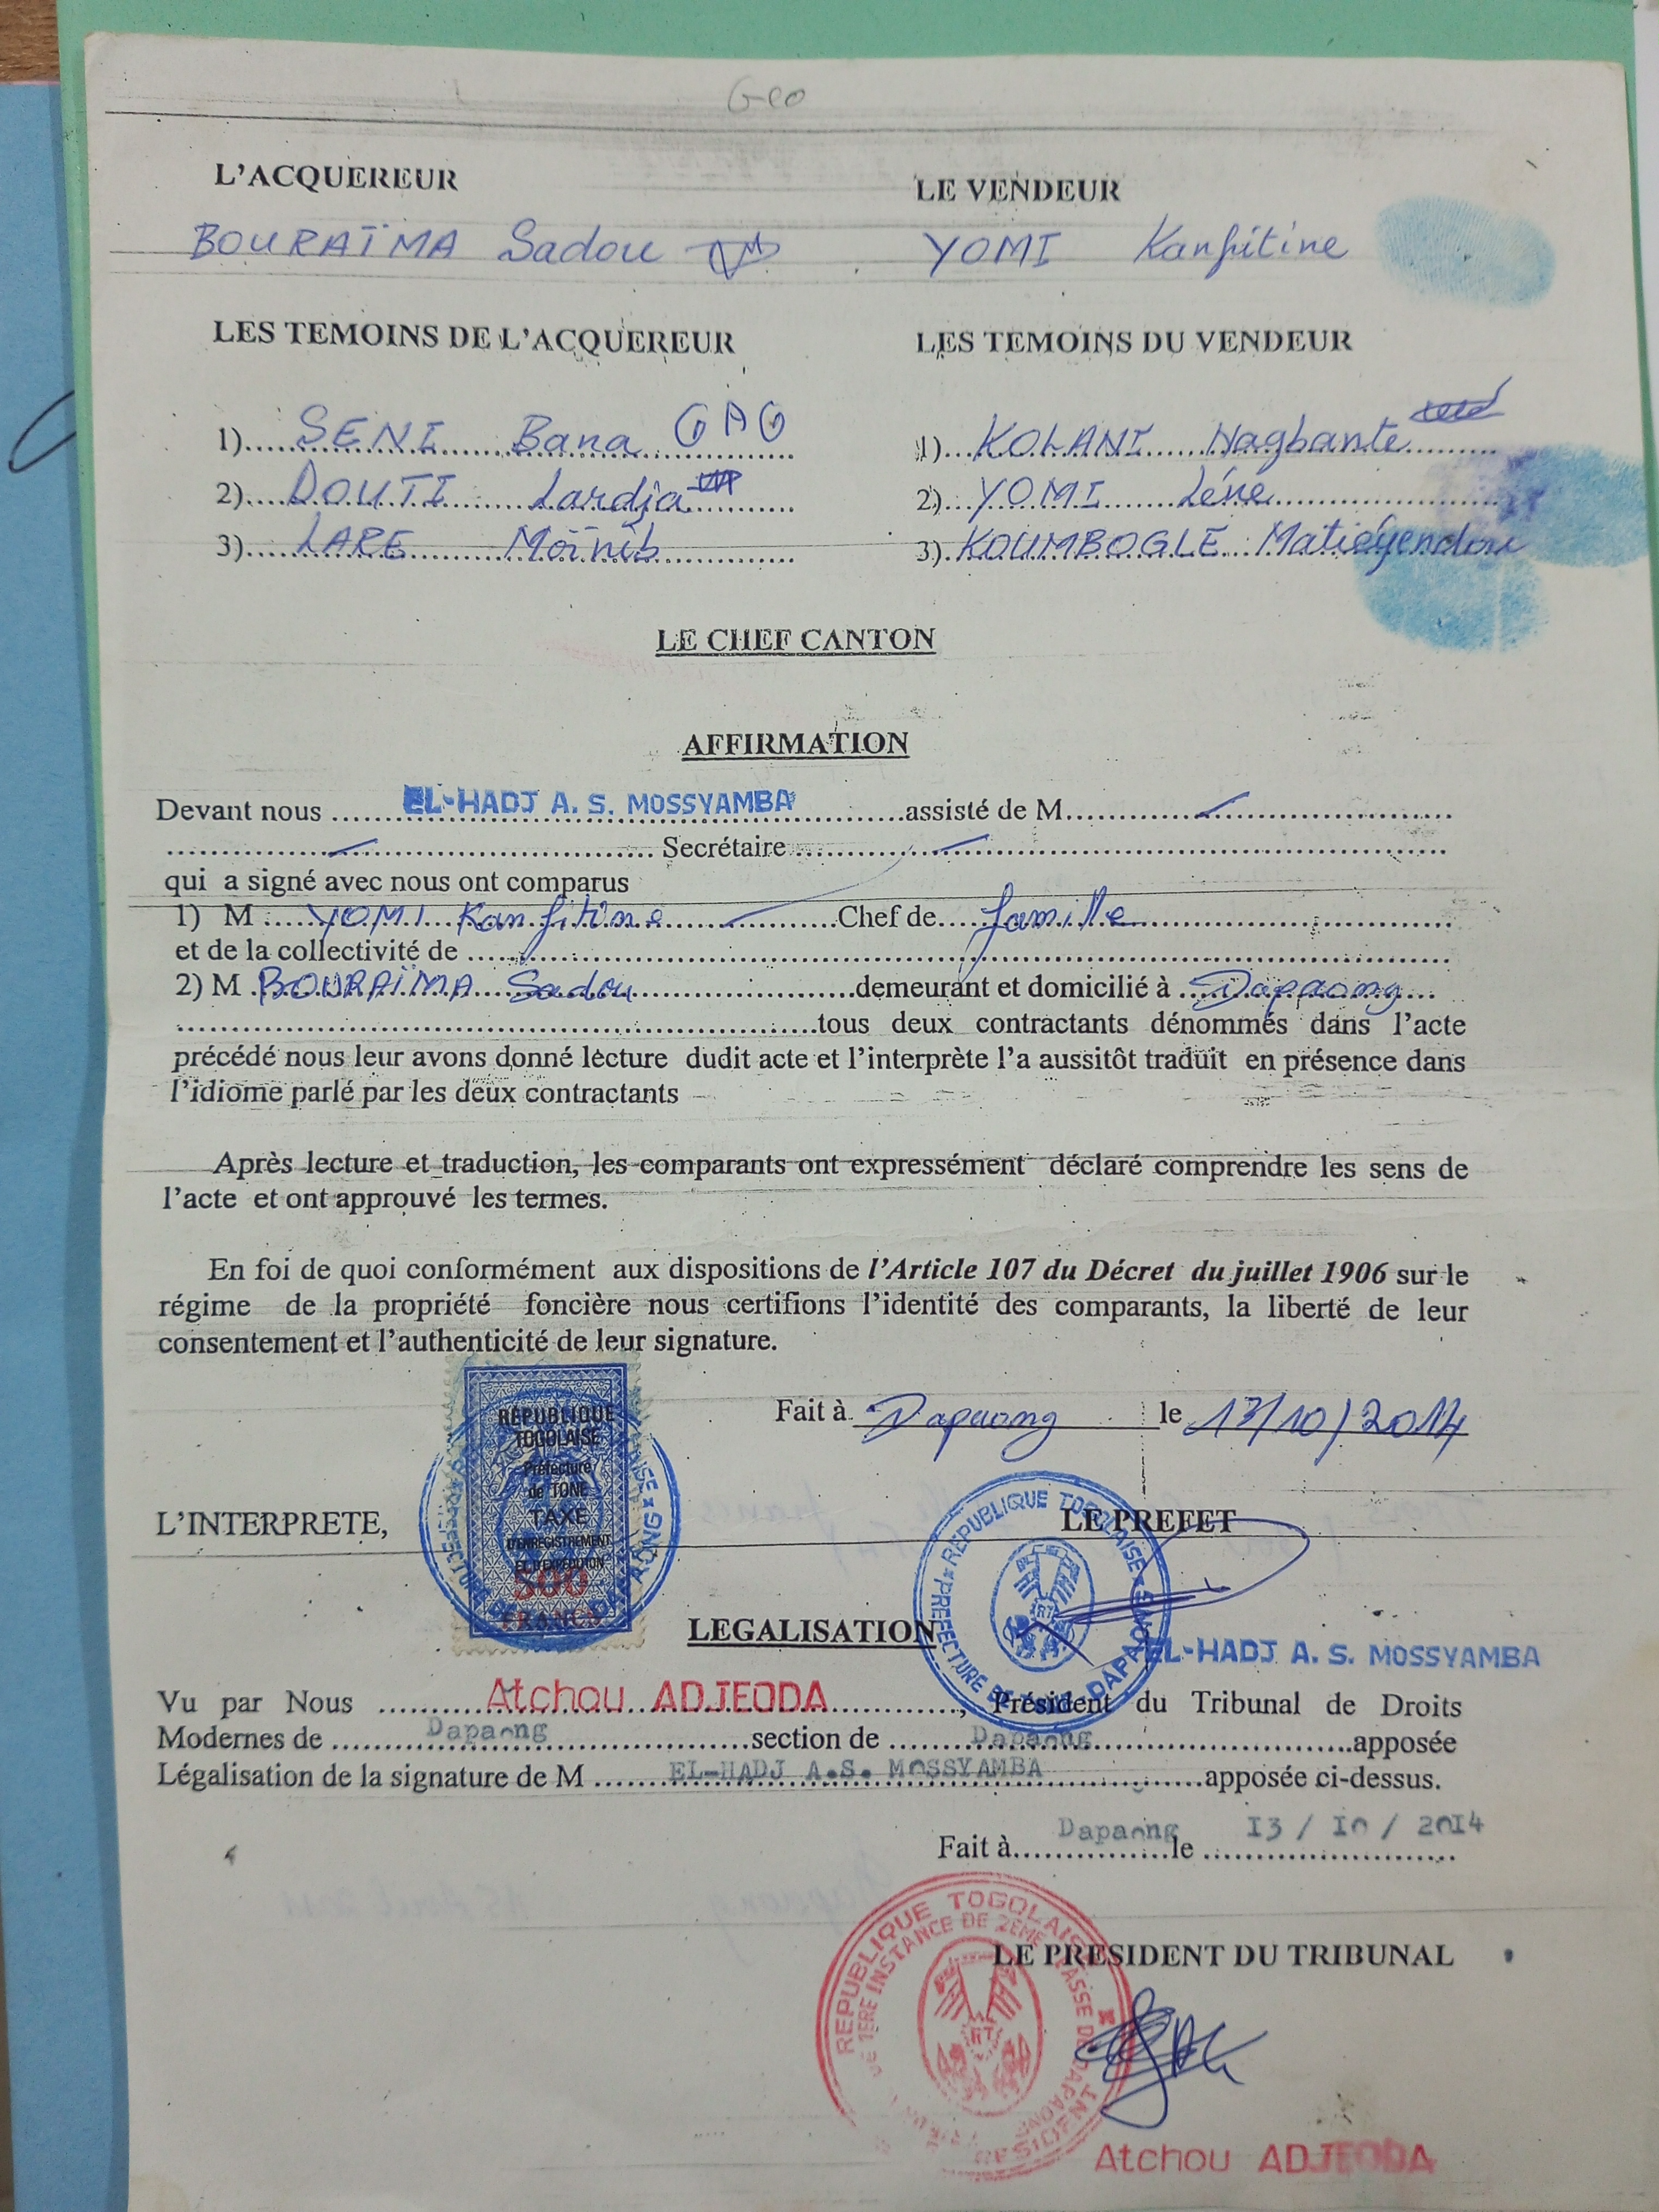 Geo
L'ACQUEREUR LE VENDEUR
BOURAÏMA Sadou YOMI Kanfitine
LES TEMOINS DE L'ACQUEREUR LES TEMOINS DU VENDEUR
1)..... SENI Bana GAG 1)... KOLANI Nagbante
2).... DOUTI Lardja 2)... YOMI Léne
3).... LARE Moïnib 3). KOUMBOGLE Matiéyendou
LE CHEF CANTON
AFFIRMATION
Devant nous ..... EL-HADJ A. S. MOSSYAMBA .....assisté de M.....
..... Secrétaire.....
qui a signé avec nous ont comparus
1) M .... YOMI Kanfitine .....Chef de.... famille.....
et de la collectivité de .....
2) M BOURAÏMA Sadou.....demeurant et domicilié à ... Dapaong....
.....tous deux contractants dénommés dans l'acte
précédé nous leur avons donné lécture dudit acte et l'interprète l'a aussitôt traduit en présence dans
l'idiome parlé par les deux contractants
Après lecture et traduction, les comparants ont expressément déclaré comprendre les sens de
l'acte et ont approuvé les termes.
En foi de quoi conformément aux dispositions de l'Article 107 du Décret du juillet 1906 sur le
régime de la propriété foncière nous certifions l'identité des comparants, la liberté de leur
consentement et l'authenticité de leur signature.
Fait à Dapaong le 13/10/2014
REPUBLIQUE
TOGOLAISE
Préfecture
de TONE
TAXE
D'ENREGISTREMENT
ET D'EXPEDITION
500
FRANCS
L'INTERPRETE, LE PREFET
REPUBLIQUE TOGOLAISE
PREFECTURE DE TONE DAPAONG
RT
LEGALISATION
EL-HADJ A. S. MOSSYAMBA
Vu par Nous ..... Atchou ADJEODA ....., Président du Tribunal de Droits
Modernes de ..... Dapaong .....section de ..... Dapaong .....apposée
Légalisation de la signature de M ..... EL-HADJ A.S. MOSSYAMBA .....apposée ci-dessus.
Fait à..... Dapaong le ..... I3 / I0 / 20I4
LE PRESIDENT DU TRIBUNAL
REPUBLIQUE TOGOLAISE
DE 1ERE INSTANCE DE 2EME CLASSE DE DAPAONG
RT
PRESIDENT
Atchou ADJEODA